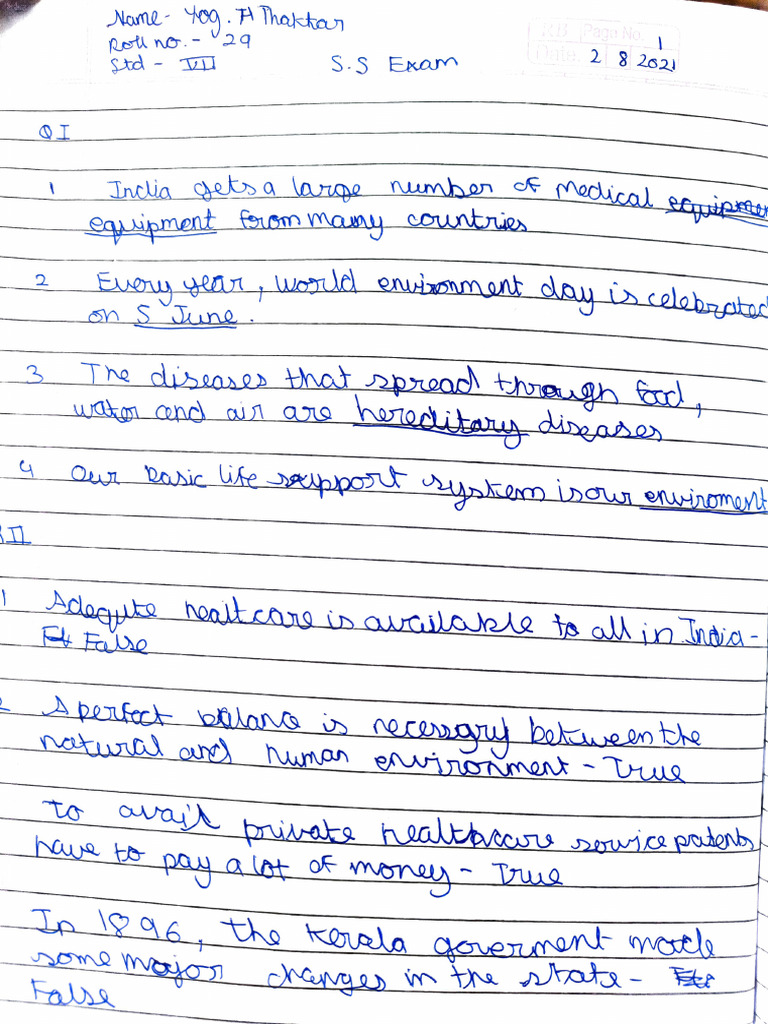 Name- Yog. H Thakkar
Roll no.- 29
Std - VII
S.S Exam
Page No. 1
Date: 2 8 2021
Q I
1 India gets a large number of medical equipmen
equipment from many countries
2 Every year, world environment day is celebrated
on 5 June.
3 The diseases that spread through food,
water and air are hereditary diseases
4 Our basic life support system is our enviroment
II
1 Adequte healtcare is available to all in India-
False
A perfect balance is necessary between the
natural and human environment - True
to avail private healthcare service patents
have to pay a lot of money - True
In 1896, the Kerala goverment made
some major changes in the state-
False